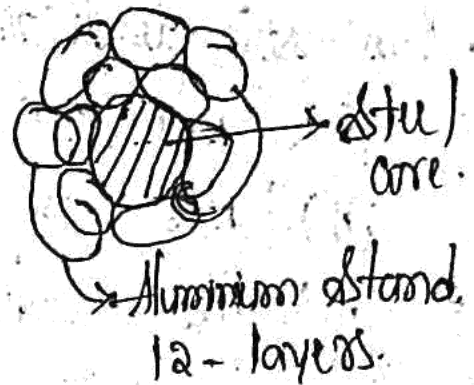 Steel
core.
Aluminium Stand.
12 - layers.